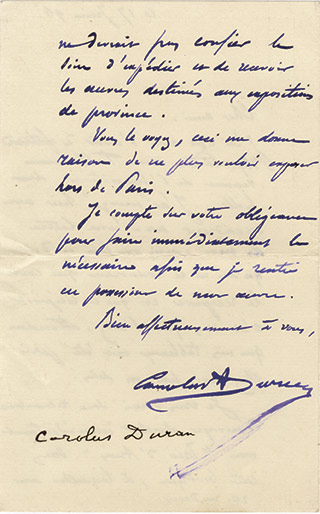 ne devrait pas confier le
soin d'expédier et de recevoir
les œuvres destinées aux expositions
de province.
Vous le voyez, ceci me donne
raison de ne plus vouloir exposer
hors de Paris.
Je compte sur votre obligeance
pour faire immédiatement le
nécessaire afin que je rentre
en possession de mon œuvre.
Bien affectueusement à vous,
Carolus Duran
Carolus Duran